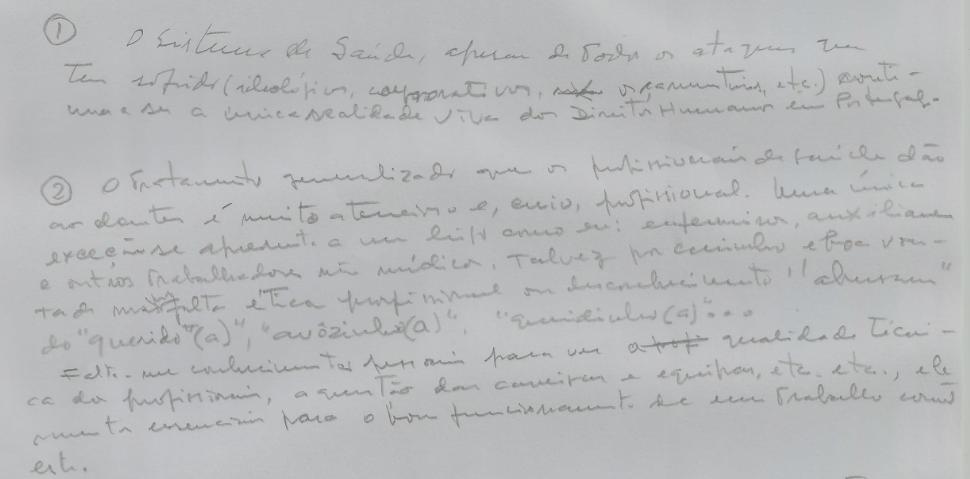 ① O Sistema de Saúde, apesar de todos os ataques que
tem sofrido (ideológicos, corporativos, orçamentários, etc.) conti-
nua a ser a única realidade viva dos Direitos Humanos em Portugal.
② O tratamento generalizado que os profissionais de saúde dão
aos doentes é muito atencioso e, creio, profissional. Uma única
exceção se apresenta a um leigo como eu: enfermeiros, auxiliares
e outros trabalhadores não médicos. Talvez por carinho e boa von-
tade mas falta ética profissional ou desconhecimento "abusam"
do "querido"(a)", "avôzinho(a)", "queridinho(a)"...
Falta-me conhecimentos para ver a qualidade técni-
ca dos profissionais, a questão das carreiras e equipas, etc. etc., ele
mentos essenciais para o bom funcionamento de um trabalho como
este.